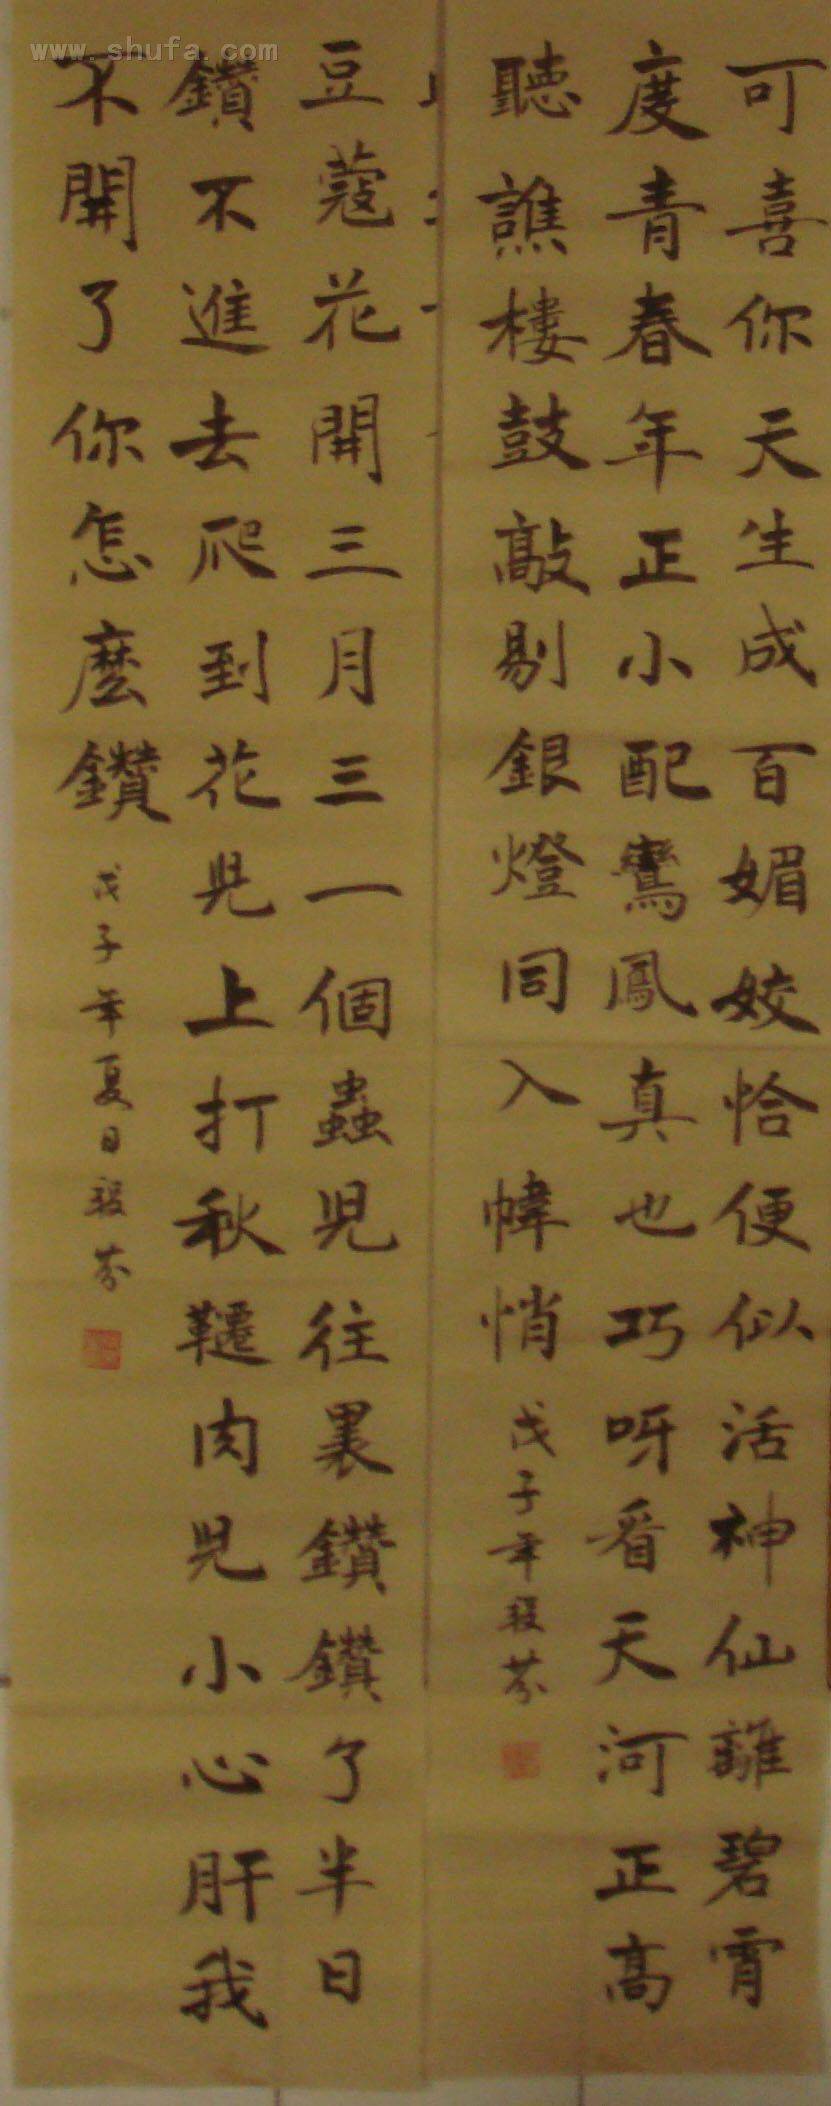 www.shufa.com
可喜你天生成百媚姣恰便似活神仙離碧霄
度青春年正小配鸞鳳真也巧呀看天河正高
聽譙樓鼓敲剔銀燈同入幃悄
戊子年
豆蔻花開三月三一個蟲兒往裏鑽鑽了半日
鑽不進去爬到花兒上打秋韆肉兒小心肝我
不開了你怎麼鑽
戊子年夏日